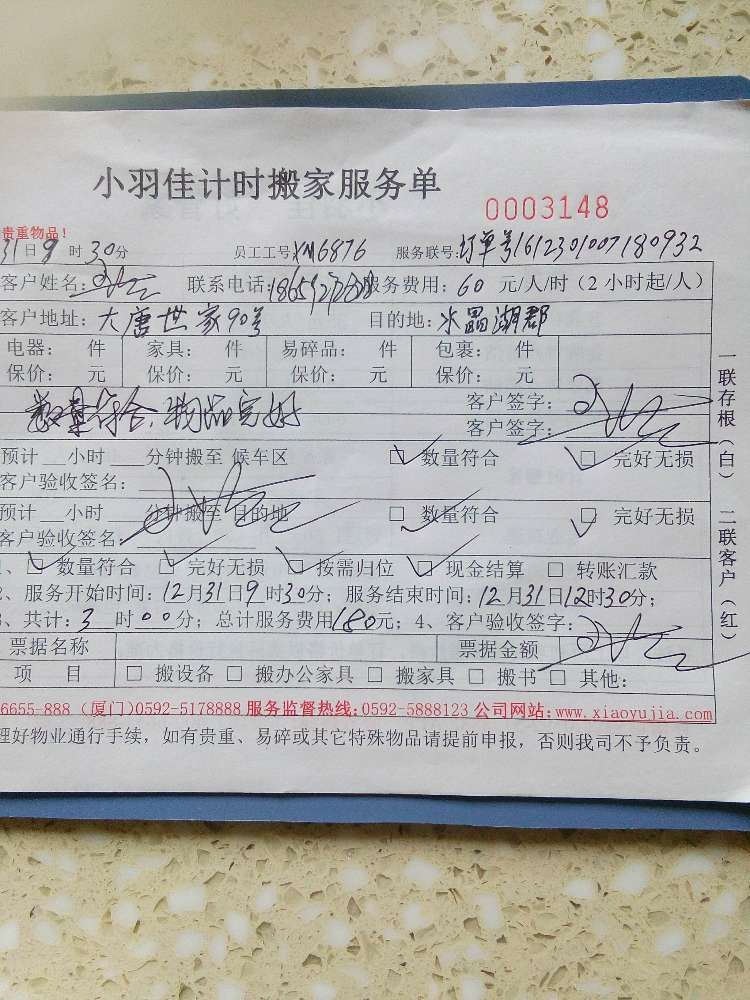 小羽佳计时搬家服务单
0003148
贵重物品！
31日9时30分 员工工号XM6876 服务联号:订单号1612301007180932
客户姓名: 联系电话: 服务费用: 60 元/人/时（2 小时起/人）
客户地址: 大唐世家90号 目的地: 水晶湖郡
电器: 件 家具: 件 易碎品: 件 包裹: 件
保价: 元 保价: 元 保价: 元 保价: 元
数量符合、物品完好 客户签字:
客户签字:
预计__小时__分钟搬至 候车区 ☑ 数量符合 ☑ 完好无损
客户验收签名:
预计__小时__分钟搬至 目的地 ☑ 数量符合 ☑ 完好无损
客户验收签名:
、☑ 数量符合 ☑ 完好无损 ☑ 按需归位 ☑ 现金结算 □ 转账汇款
2、服务开始时间: 12月31日9时30分; 服务结束时间: 12月31日12时30分;
3、共计: 3 时00分; 总计服务费用180元; 4、客户验收签字:
票据名称 票据金额
项 目 □ 搬设备 □ 搬办公家具 □ 搬家具 □ 搬书 □ 其他:
6655-888（厦门)0592-5178888 服务监督热线:0592-5888123 公司网站:www.xiaoyujia.com
理好物业通行手续，如有贵重、易碎或其它特殊物品请提前申报，否则我司不予负责。
一联存根（白） 二联客户（红）